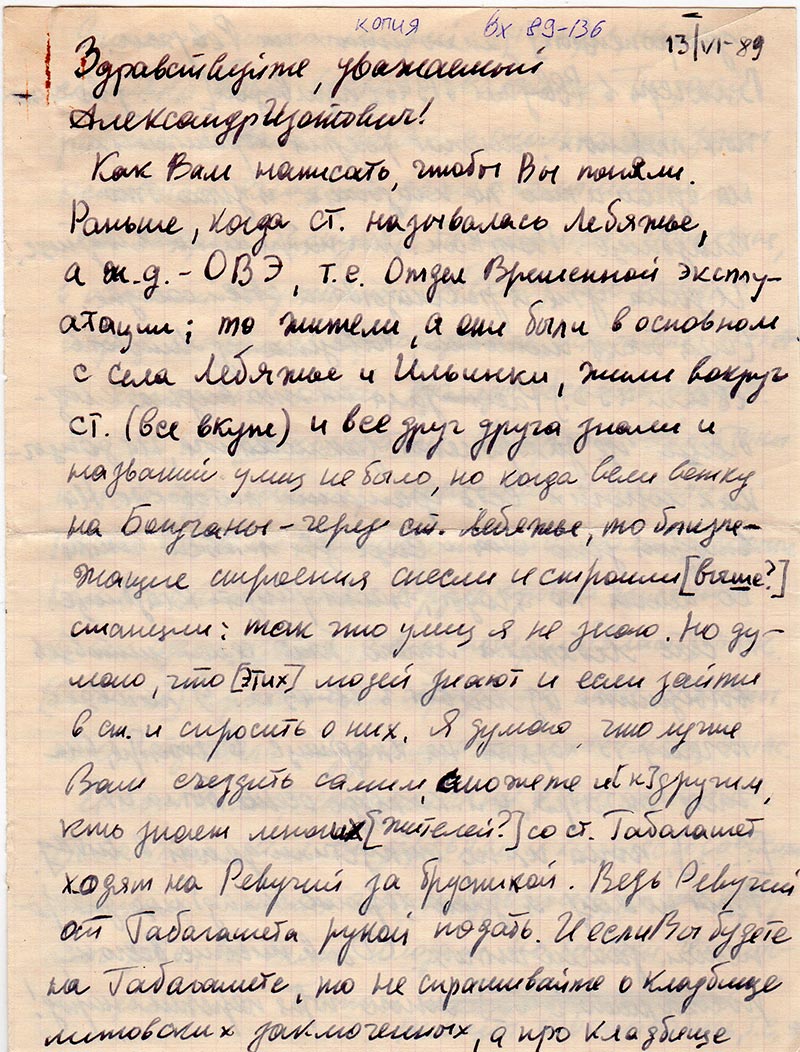 копия вх 89-136
13/VI-89
Здравствуйте, уважаемый
Александр Изотович!
Как Вам написать, чтобы Вы поняли.
Раньше, когда ст. называлась Лебяжье,
а ж.д. - ОВЭ, т.е. Отдел Временной эксплу-
атации; то жители, а они были в основном
с села Лебяжье и Ильинки, жили вокруг
ст. (все вкупе) и все друг друга знали и
названий улиц не было, но когда вели ветку
на Богучаны - через ст. Лебяжье, то близле-
жащие строения снесли и строили [выше?]
станции: так что улиц я не знаю. Но ду-
маю, что [этих] людей знают и если зайти
в ст. и спросить о них. Я думаю, что лучше
Вам съездить самим, сможете и [к] другим,
кто знает многих [жителей?] со ст. Габагашет
ходят на Ревучий за брусникой. Ведь Ревучий
от Габагашета рукой подать. И если Вы будете
на Габагашете, то не спрашивайте о кладбище
литовских заключенных, а про кладбище